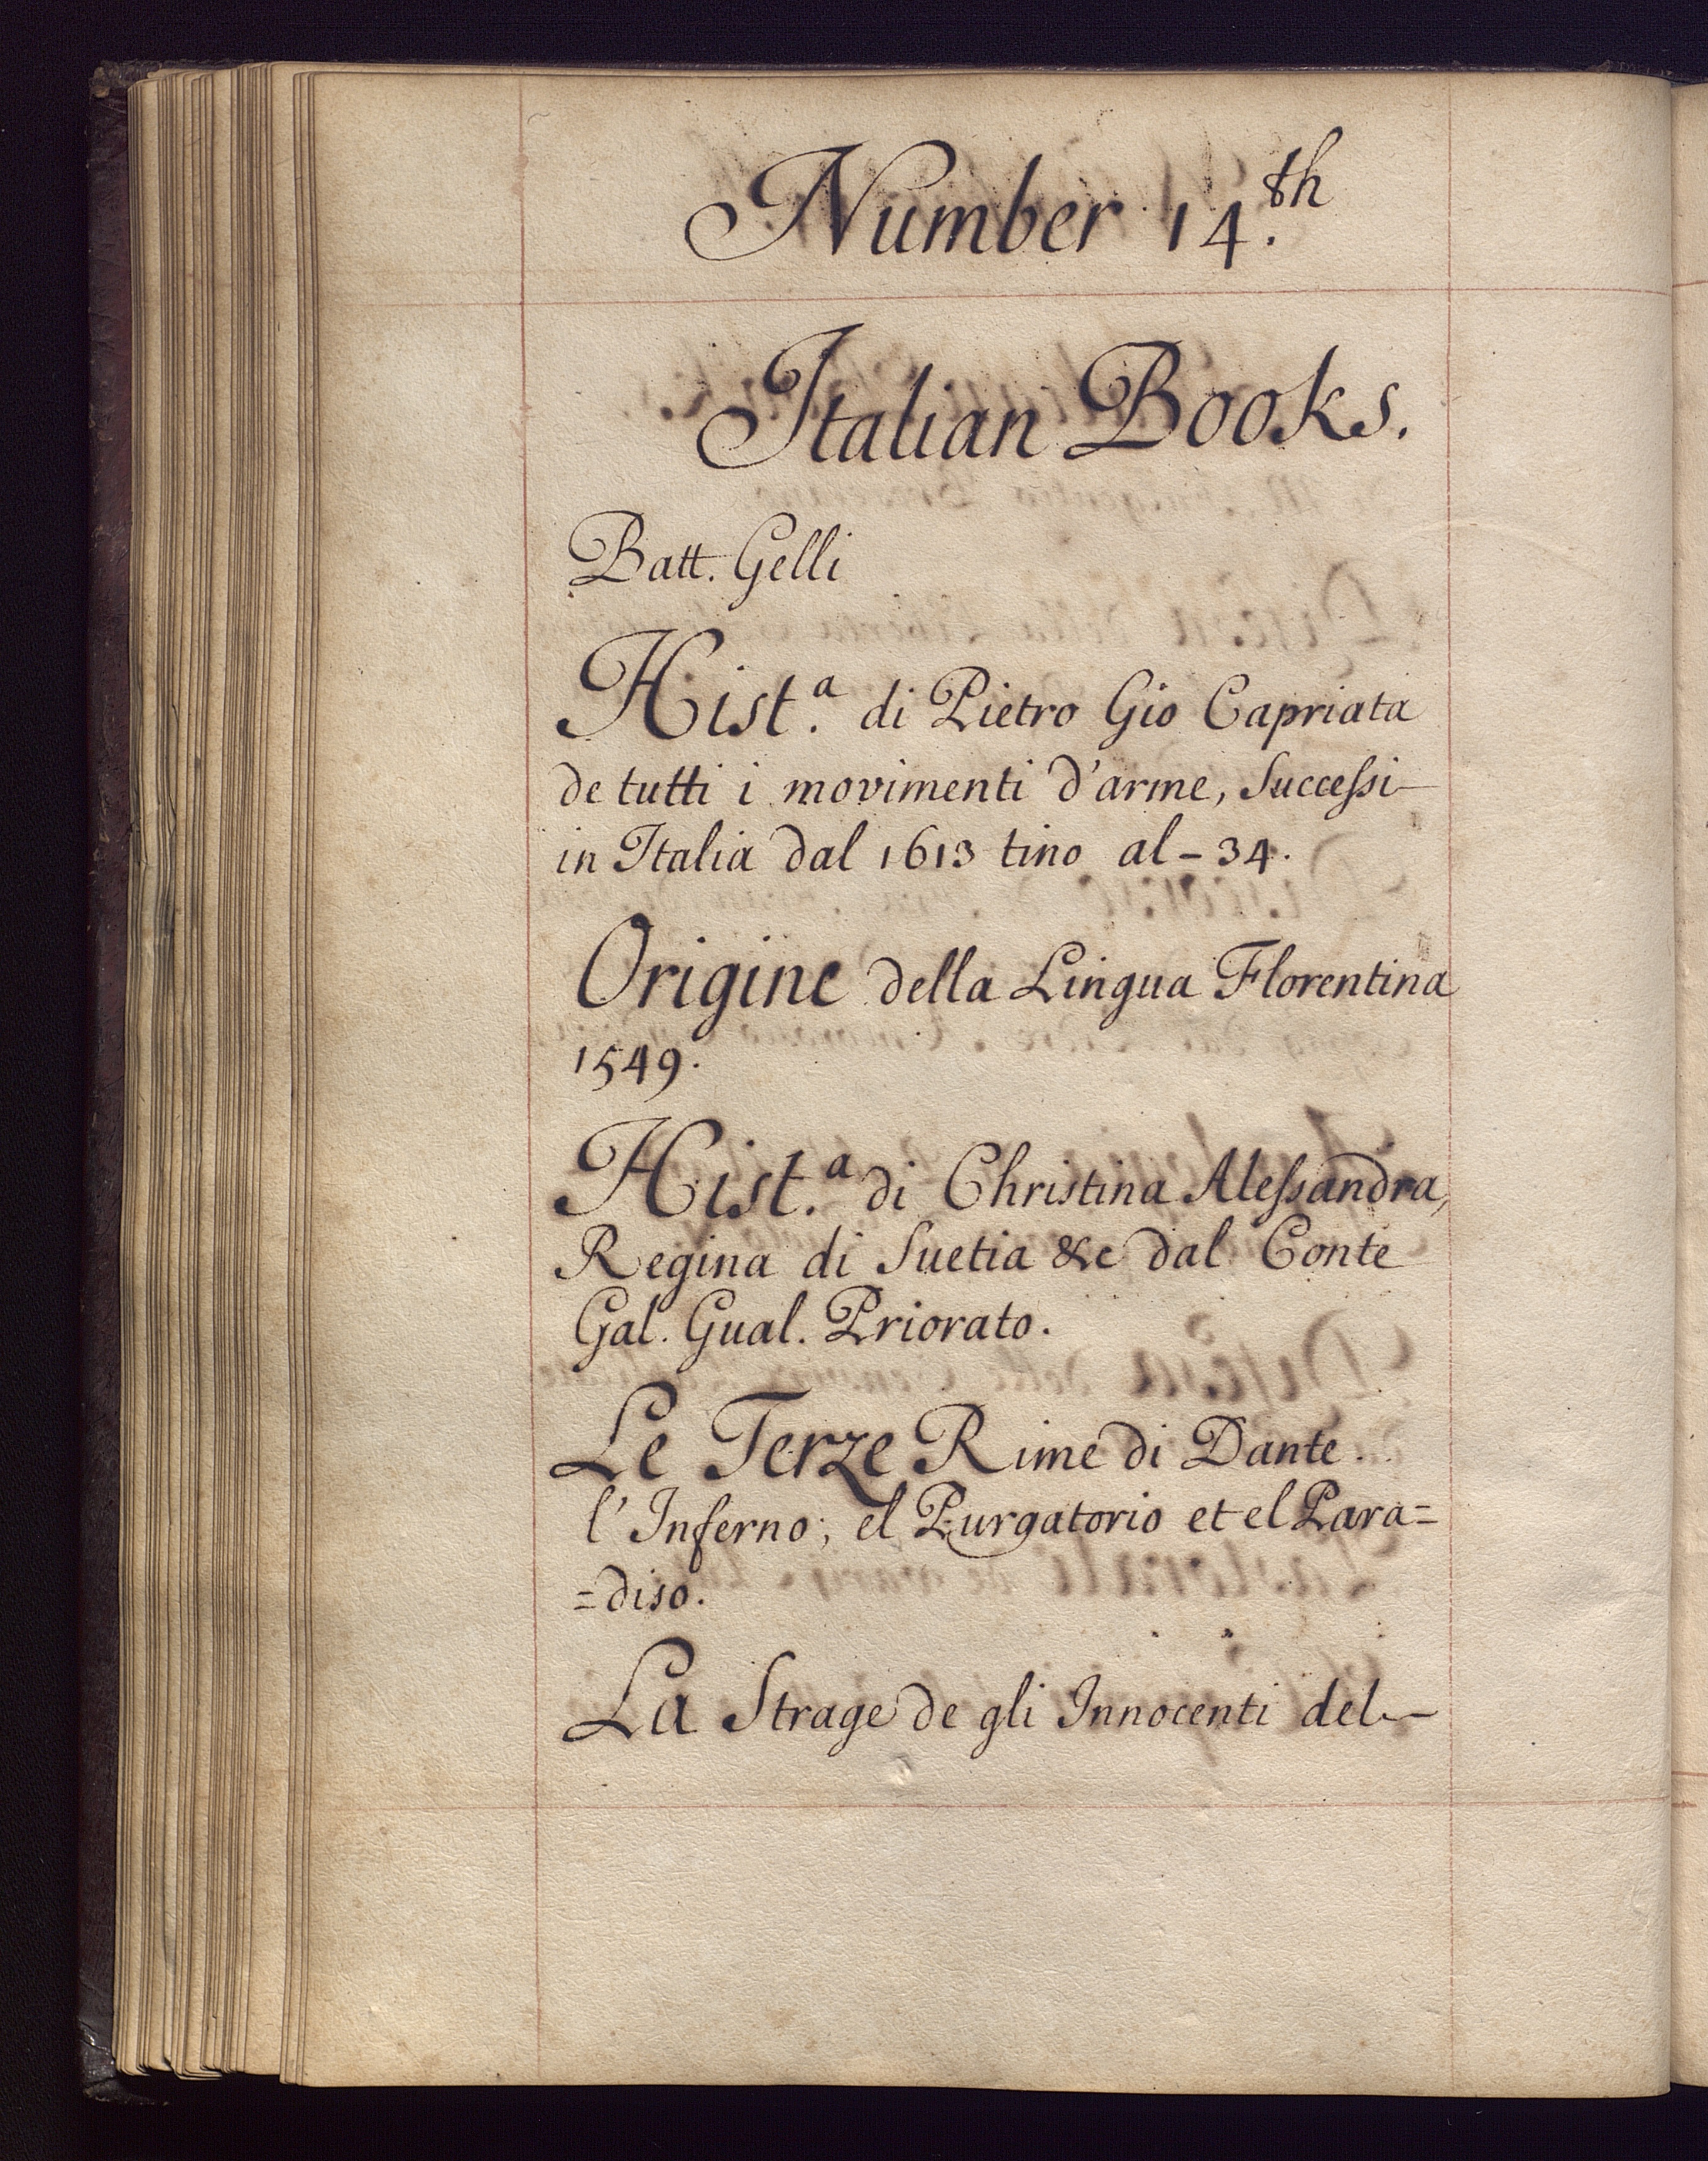 Number 14.th
Italian Books.
Batt. Gelli
Hist.a di Pietro Gio Capriata
de tutti i movimenti d'arme, Successi
in Italia dal 1613 tino al - 34.
Origine della Lingua Florentina
1549.
Hist.a di Christina Alessandra,
Regina di Suetia &c dal Conte
Gal. Gual. Priorato.
Le Terze Rime di Dante.
l'Inferno; el Purgatorio et el Para=
=diso.
La Strage de gli Innocenti del